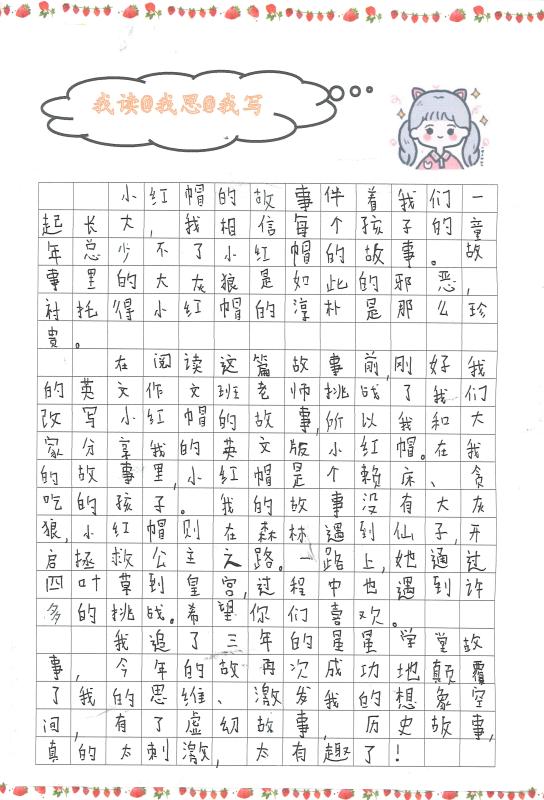 我读@我思@我写
小红帽的故事件着我们一
起长大，我相信每个孩子的童
年总少不了小红帽的故事。故
事里的大灰狼是如此的邪恶，
衬托得小红帽的淳朴是那么珍
贵。
在阅读这篇故事前，刚好我
的英文作文班老师挑战了我们
改写小红帽的故事，所以我和大
家分享我的英文版小红帽。在我
的故事里，小红帽是个赖床、贪
吃的孩子。我的故事没有大灰
狼，小红帽则在森林遇到仙子，开
启拯救公主之路。一路上，她通过
四叶草到皇宫，过程中也遇到许
多的挑战。希望你们喜欢。
我追了三年的星星学堂故
事，今年的故再次成功地颠覆
了我的思维、激发我的想象空
间，有了虚幻故事，历史故事，
真的太刺激，太有趣了！